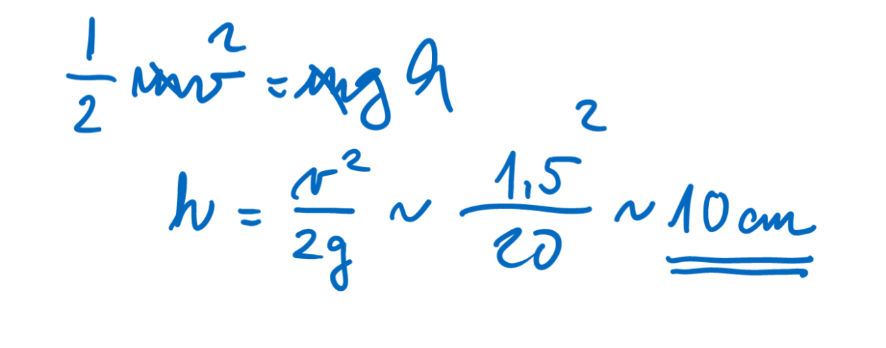 1/2 mv² = mgh
h = v²/2g ~ 1,5²/20 ~ 10 cm